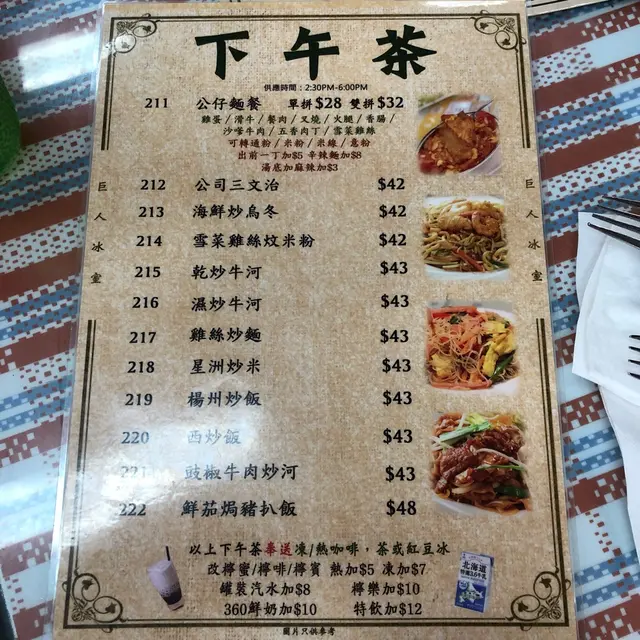 下午茶
供應時間：2:30PM-6:00PM
211 公仔麵餐 單拼$28 雙拼$32
雞蛋/滑牛/餐肉/叉燒/火腿/香腸/
沙嗲牛肉/五香肉丁/雪菜雞絲
可轉通粉/米粉/米線/意粉
出前一丁加$5 辛辣麵加$8
湯底加麻辣加$3
212 公司三文治 $42
213 海鮮炒烏冬 $42
214 雪菜雞絲炆米粉 $42
215 乾炒牛河 $43
216 濕炒牛河 $43
217 雞絲炒麵 $43
218 星洲炒米 $43
219 楊州炒飯 $43
220 西炒飯 $43
221 豉椒牛肉炒河 $43
222 鮮茄焗豬扒飯 $48
巨人冰室
巨人冰室
以上下午茶奉送凍/熱咖啡，茶或紅豆冰
改檸蜜/檸啡/檸賓 熱加$5 凍加$7
罐裝汽水加$8 檸樂加$10
360鮮奶加$10 特飲加$12
北海道
圖片只供參考